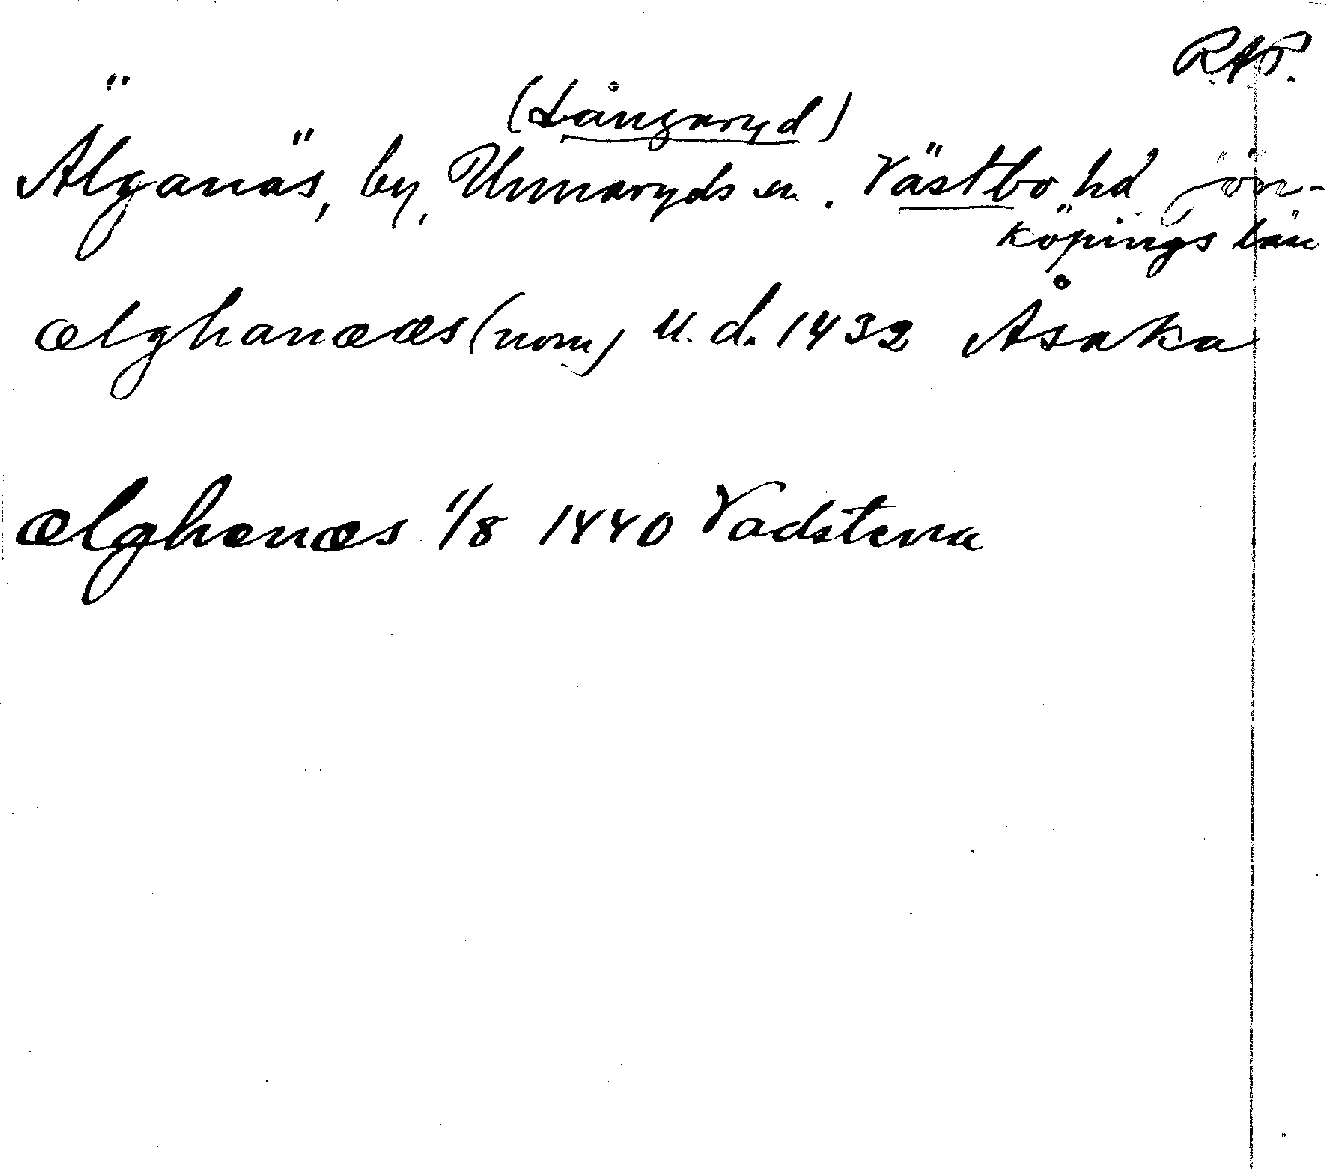 RAP.
(Långaryd)
Älganäs, by, Unnaryds sn. Västbo hd Jön-
köpings län
ælghanææs (nom) u.d. 1432 Åsaka
ælghenæs 1/8 1440 Vadstena